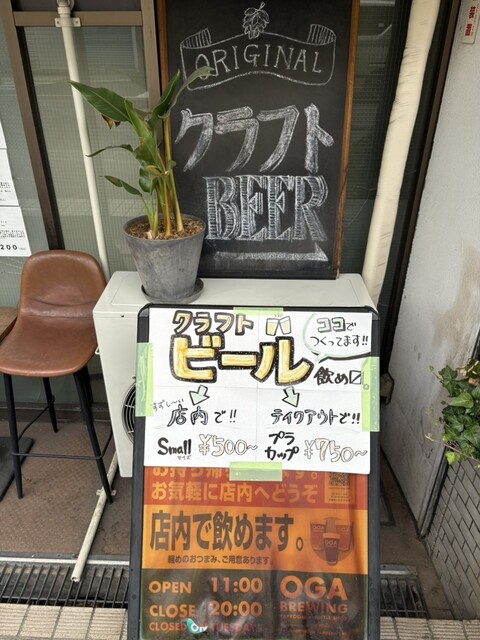 ORIGINAL
クラフト
BEER
クラフト
ビール
ココで
つくってます!!
飲め〼
すずしーい
店内で!!
テイクアウトで!!
Smallサイズ ¥500~
プラカップ ¥750~
お気軽に店内へどうぞ
店内で飲めます。
軽めのおつまみ、ご用意あります。
OPEN 11:00
CLOSE 20:00
CLOSED ON TUESDAY
OGA
BREWING
200